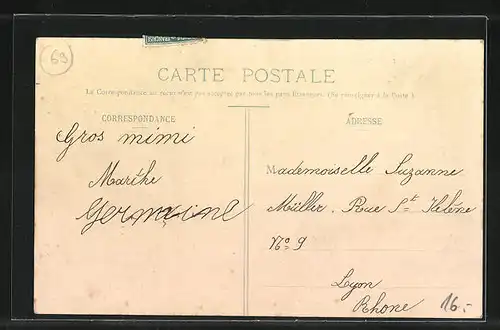 69
CARTE POSTALE
La Correspondance au recto n'est pas acceptée par tous les pays étrangers. (Se renseigner à la Poste)
CORRESPONDANCE
ADRESSE
Gros mimi
Marthe
Germaine
Mademoiselle Suzanne
Müller. Rue St Helène
No 9
Lyon
Rhone
16.-